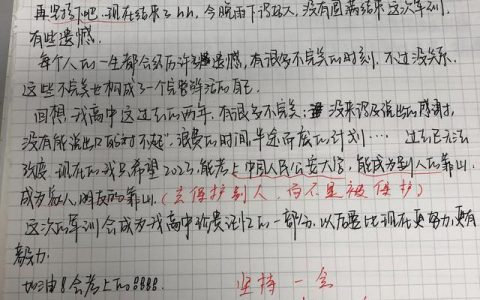 再坚持下吧. 现在结束了hh, 今晚雨下得挺大, 没有圆满结束这次军训,
有些遗憾.
每个人的一生都会经历许多遗憾, 有很多不完美的时刻, 不过没关系.
这些不完美也构成了一个完整鲜活的自己.
回想我高中这过去的两年, 有很多不完美: 没来得及说出的感谢,
没有能说出口的"对不起", 浪费的时间, 半途而废的计划…… 过去已无法
改变. 现在的我只希望2023, 能考上中国人民公安大学, 能成为别人的靠山,
成为家人, 朋友的靠山. (去保护别人, 而不是被保护)
这次军训会成为我高中珍贵记忆的一部分. 以后要比现在更努力, 更有
毅力.
加油! 会考上的!!!!
坚持一会